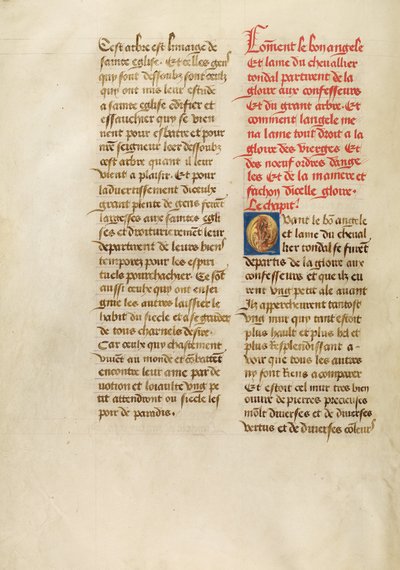 Cest arbre est limaige de
saincte eglise. Et celles gens
qui sont dessoubz sont ceulx
qui ont mis leur estude
a saincte eglise edifier et
essauchier qui se vien
nent pour esbatre et pour
mr̄ seigneur loer dessoubz
cest arbre quant il leur
vient a plaisir. Et pour
ladvertissement diceulx
grant plente de gens feirēt
largesses aux sainctes egli
ses et droiturierement leur
departent de leurs biens
temporez pour les espiri
tuelz pourchachier. Ce sōt
aussi ceulx qui ont ensei
gnie les autres laissier le
habit du siecle et a se garder
de tous charnels desirs.
Car ceulx qui chastement
vivent au monde et cōbatent
encontre leur ame par de
votion et loiaulte ung pe
tit attendront ou siecle les
poir de paradis.
Coment le bon angele
Et lame du chevallier
tondal partirent de la
gloire aux confesseurs
Et du grant arbre. Et
comment langele me
na lame tout droit a la
gloire des vierges Et
des noeuf ordres dange
les Et de la maniere et
fachon dicelle gloire.
Le chapitr̄
Quant le bō angele
et lame du cheval
lier tondal se furēt
departis de la gloire aux
confesseurs et que ilz eu
rent ung petit ale avant
Ilz apperchurent tantost
ung mur qui tant estoit
plus hault et plus bel et
plus resplendissant a
voir que tous les autres
ny font riens a comparer
Et estoit cel mur tres bien
ouvre de pierres precieuses
mōlt diverses et de diverses
vertus et de diverses couleurs